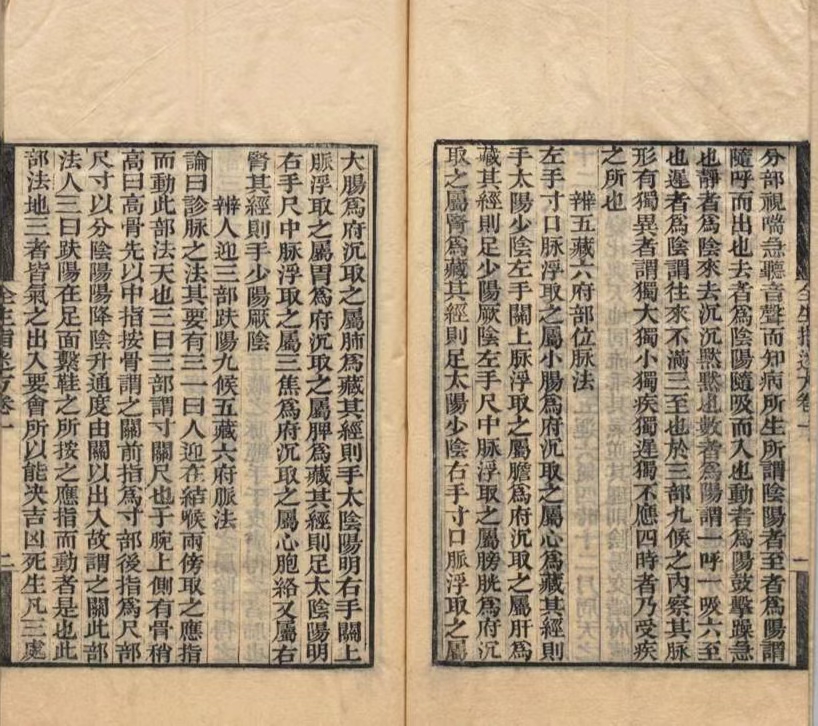 分部視喘急聽音聲而知病所生所謂陰陽者至者爲陽謂
隨呼而出也去者爲陰陽隨吸而入也動者爲陽鼓擊躁急
也靜者爲陰來去沉沉黙黙也數者爲陽謂一呼一吸六至
也遲者爲陰謂往來不滿三至也於三部九候之內察其脉
形有獨異者謂獨大獨小獨疾獨遲獨不應四時者乃受疾
之所也
辨五藏六府部位脉法
左手寸口脉浮取之屬小腸爲府沉取之屬心爲藏其經則
手太陽少陰左手關上脉浮取之屬膽爲府沉取之屬肝爲
藏其經則足少陽厥陰左手尺中脉浮取之屬膀胱爲府沉
取之屬腎爲藏其經則足太陽少陰右手寸口脈浮取之屬
大腸爲府沉取之屬肺爲藏其經則手太陰陽明右手關上
脈浮取之屬胃爲府沉取之屬脾爲藏其經則足太陰陽明
右手尺中脉浮取之屬三焦爲府沉取之屬心胞絡又屬右
腎其經則手少陽厥陰
辨人迎三部趺陽九候五藏六府脈法
論曰診脈之法其要有三一曰人迎在結喉兩傍取之應指
而動此部法天也二曰三部謂寸關尺也于腕上側有骨稍
高曰高骨先以中指按骨謂之關前指爲寸部後指爲尺部
尺寸以分陰陽陽降陰升通度由關以出入故謂之關此部
法人三曰趺陽在足面繫鞋之所按之應指而動者是也此
部法地三者皆氣之出入要會所以能決吉凶死生凡三處
全生指迷方卷一
一
全生指迷方卷一
二